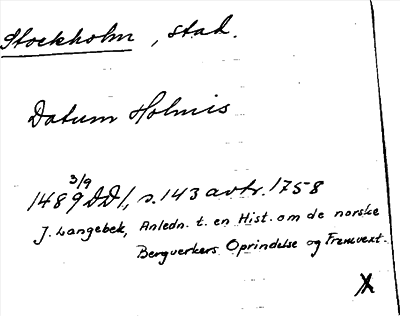 Stockholm, stad.
Datum Holmis
3/9
1489 DD1, s. 143 avtr. 1758
J. Langebek, Anledn. t. en Hist. om de norske
Bergverkers Oprindelse og Fremvext.
X